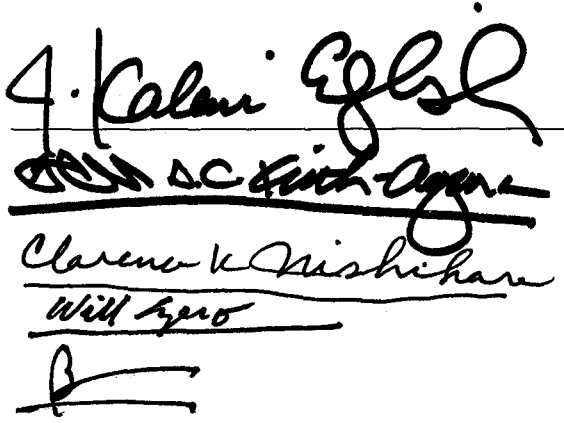 J. Kalani English
S.C. Keith-Agaran
Clarence K Nishihara
Will Espero